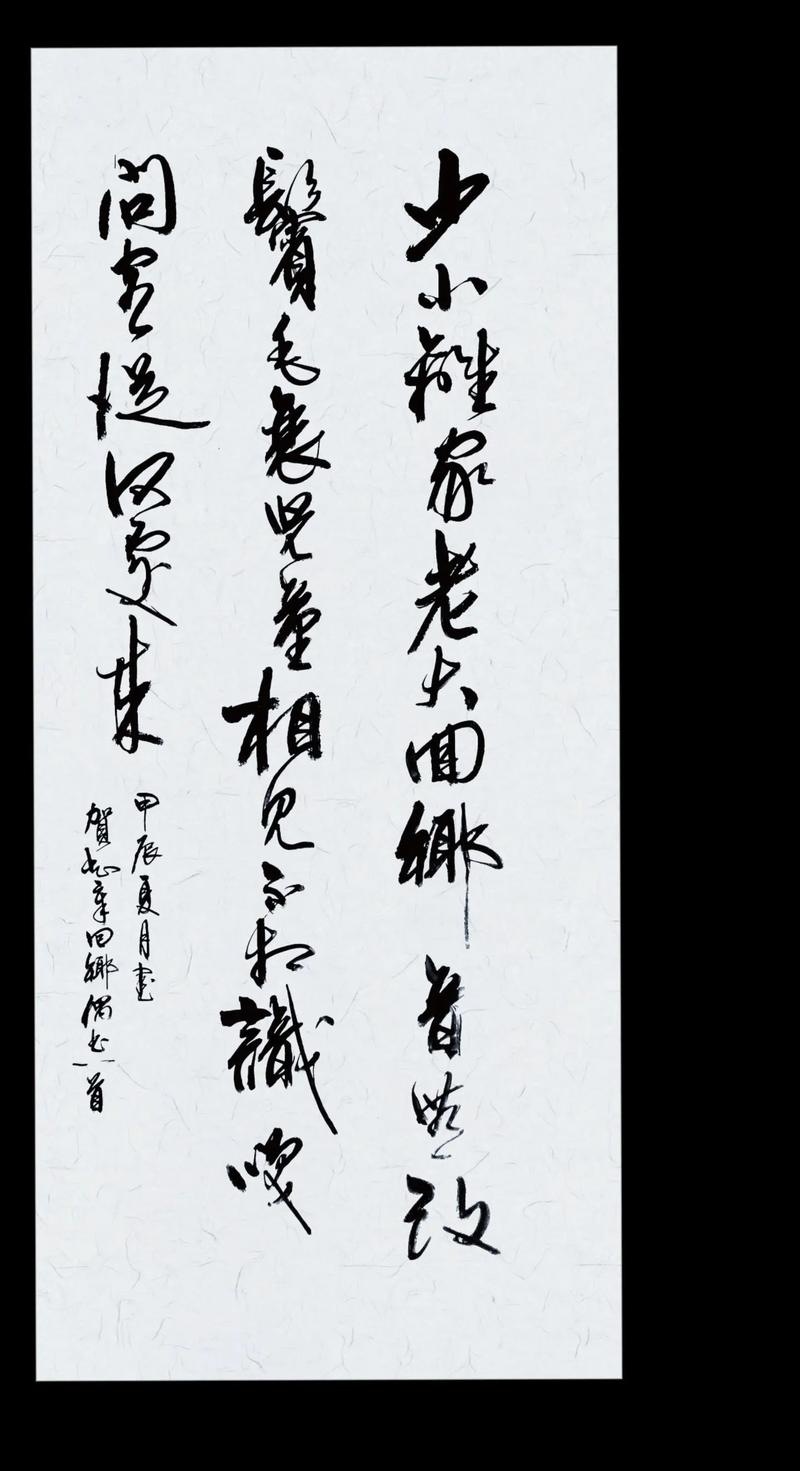 少小離家老大回鄉音無改
鬢毛衰兒童相見不相識咲
問客從何處來
甲辰夏月書
賀知章回鄉偶書一首